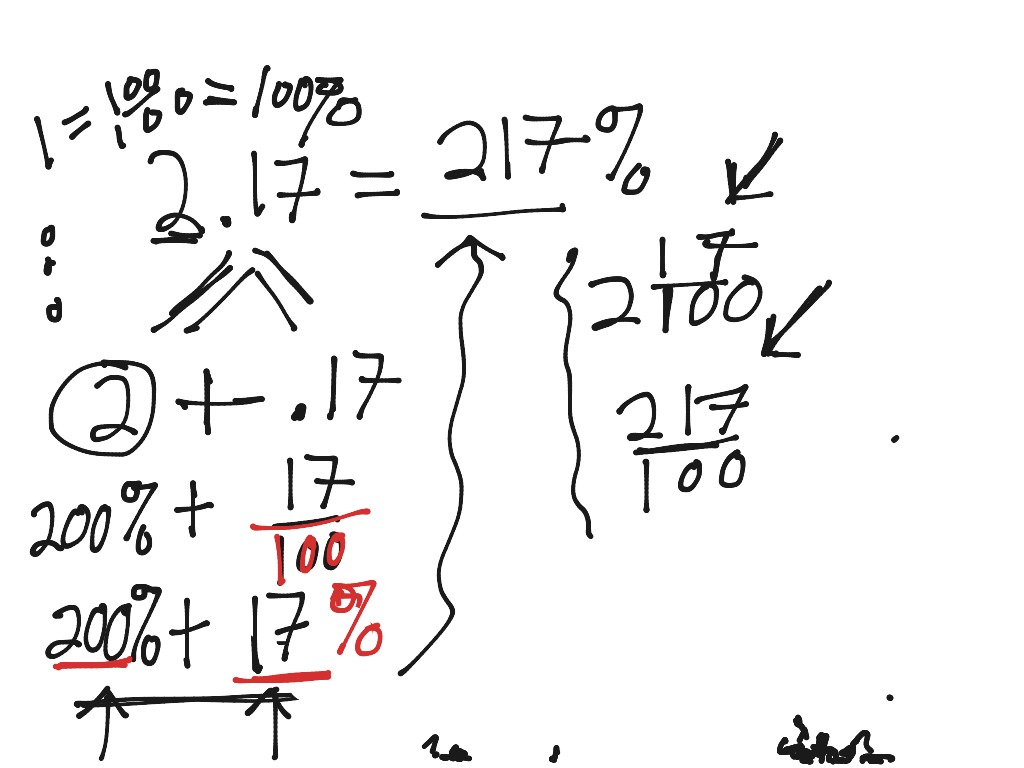 1 = 100/100 = 100%
2.17 = 217%
2 + .17
200% + 17/100
200% + 17%
2 17/100
217/100